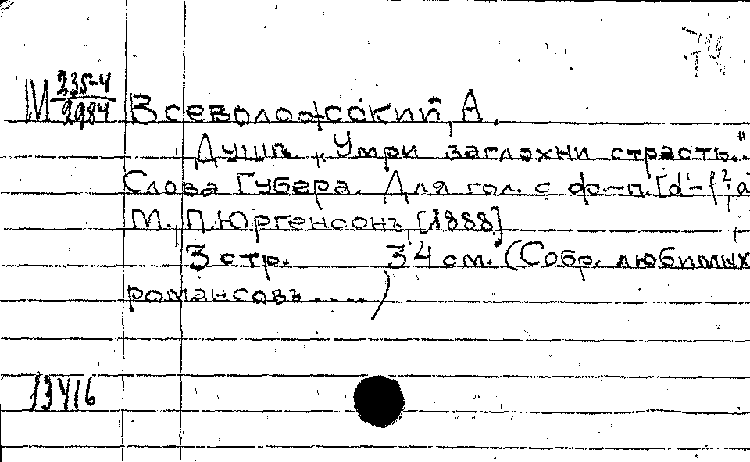 74
М 235-4
2984
Всеволожский, А.
Душа „Умри заглохни страсть.."
Слова Губера. Для гол. с ф-п. [d'-f²; a
М., П. Юргенсонъ, [1888]
3 стр. 34 см. (Собр. любимых
романсовъ ....)
13416